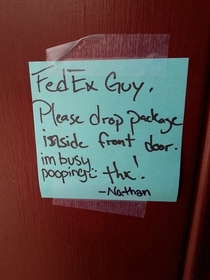 FedEx Guy,
Please drop package
inside front door.
im busy
pooping! thx!
-Nathan